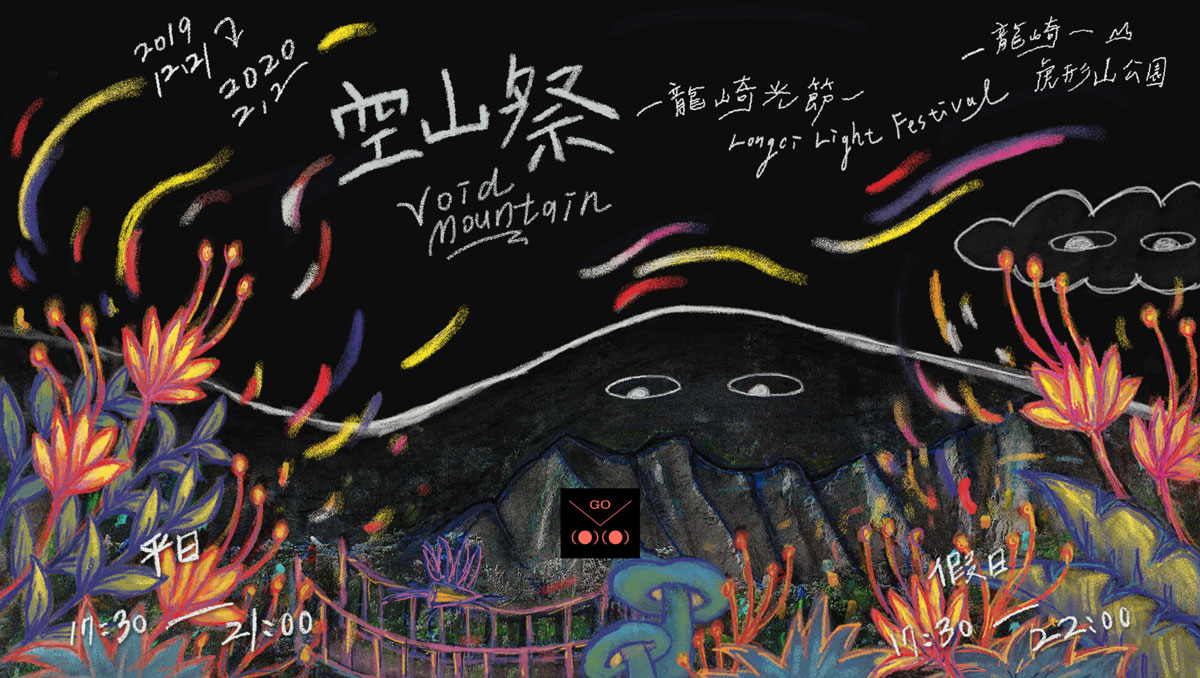 2019
12.21
2020
2.2
空山祭
Void
Mountain
龍崎光節
Longci Light Festival
龍崎
虎形山公園
GO
平日
17:30 — 21:00
假日
17:30 — 22:00